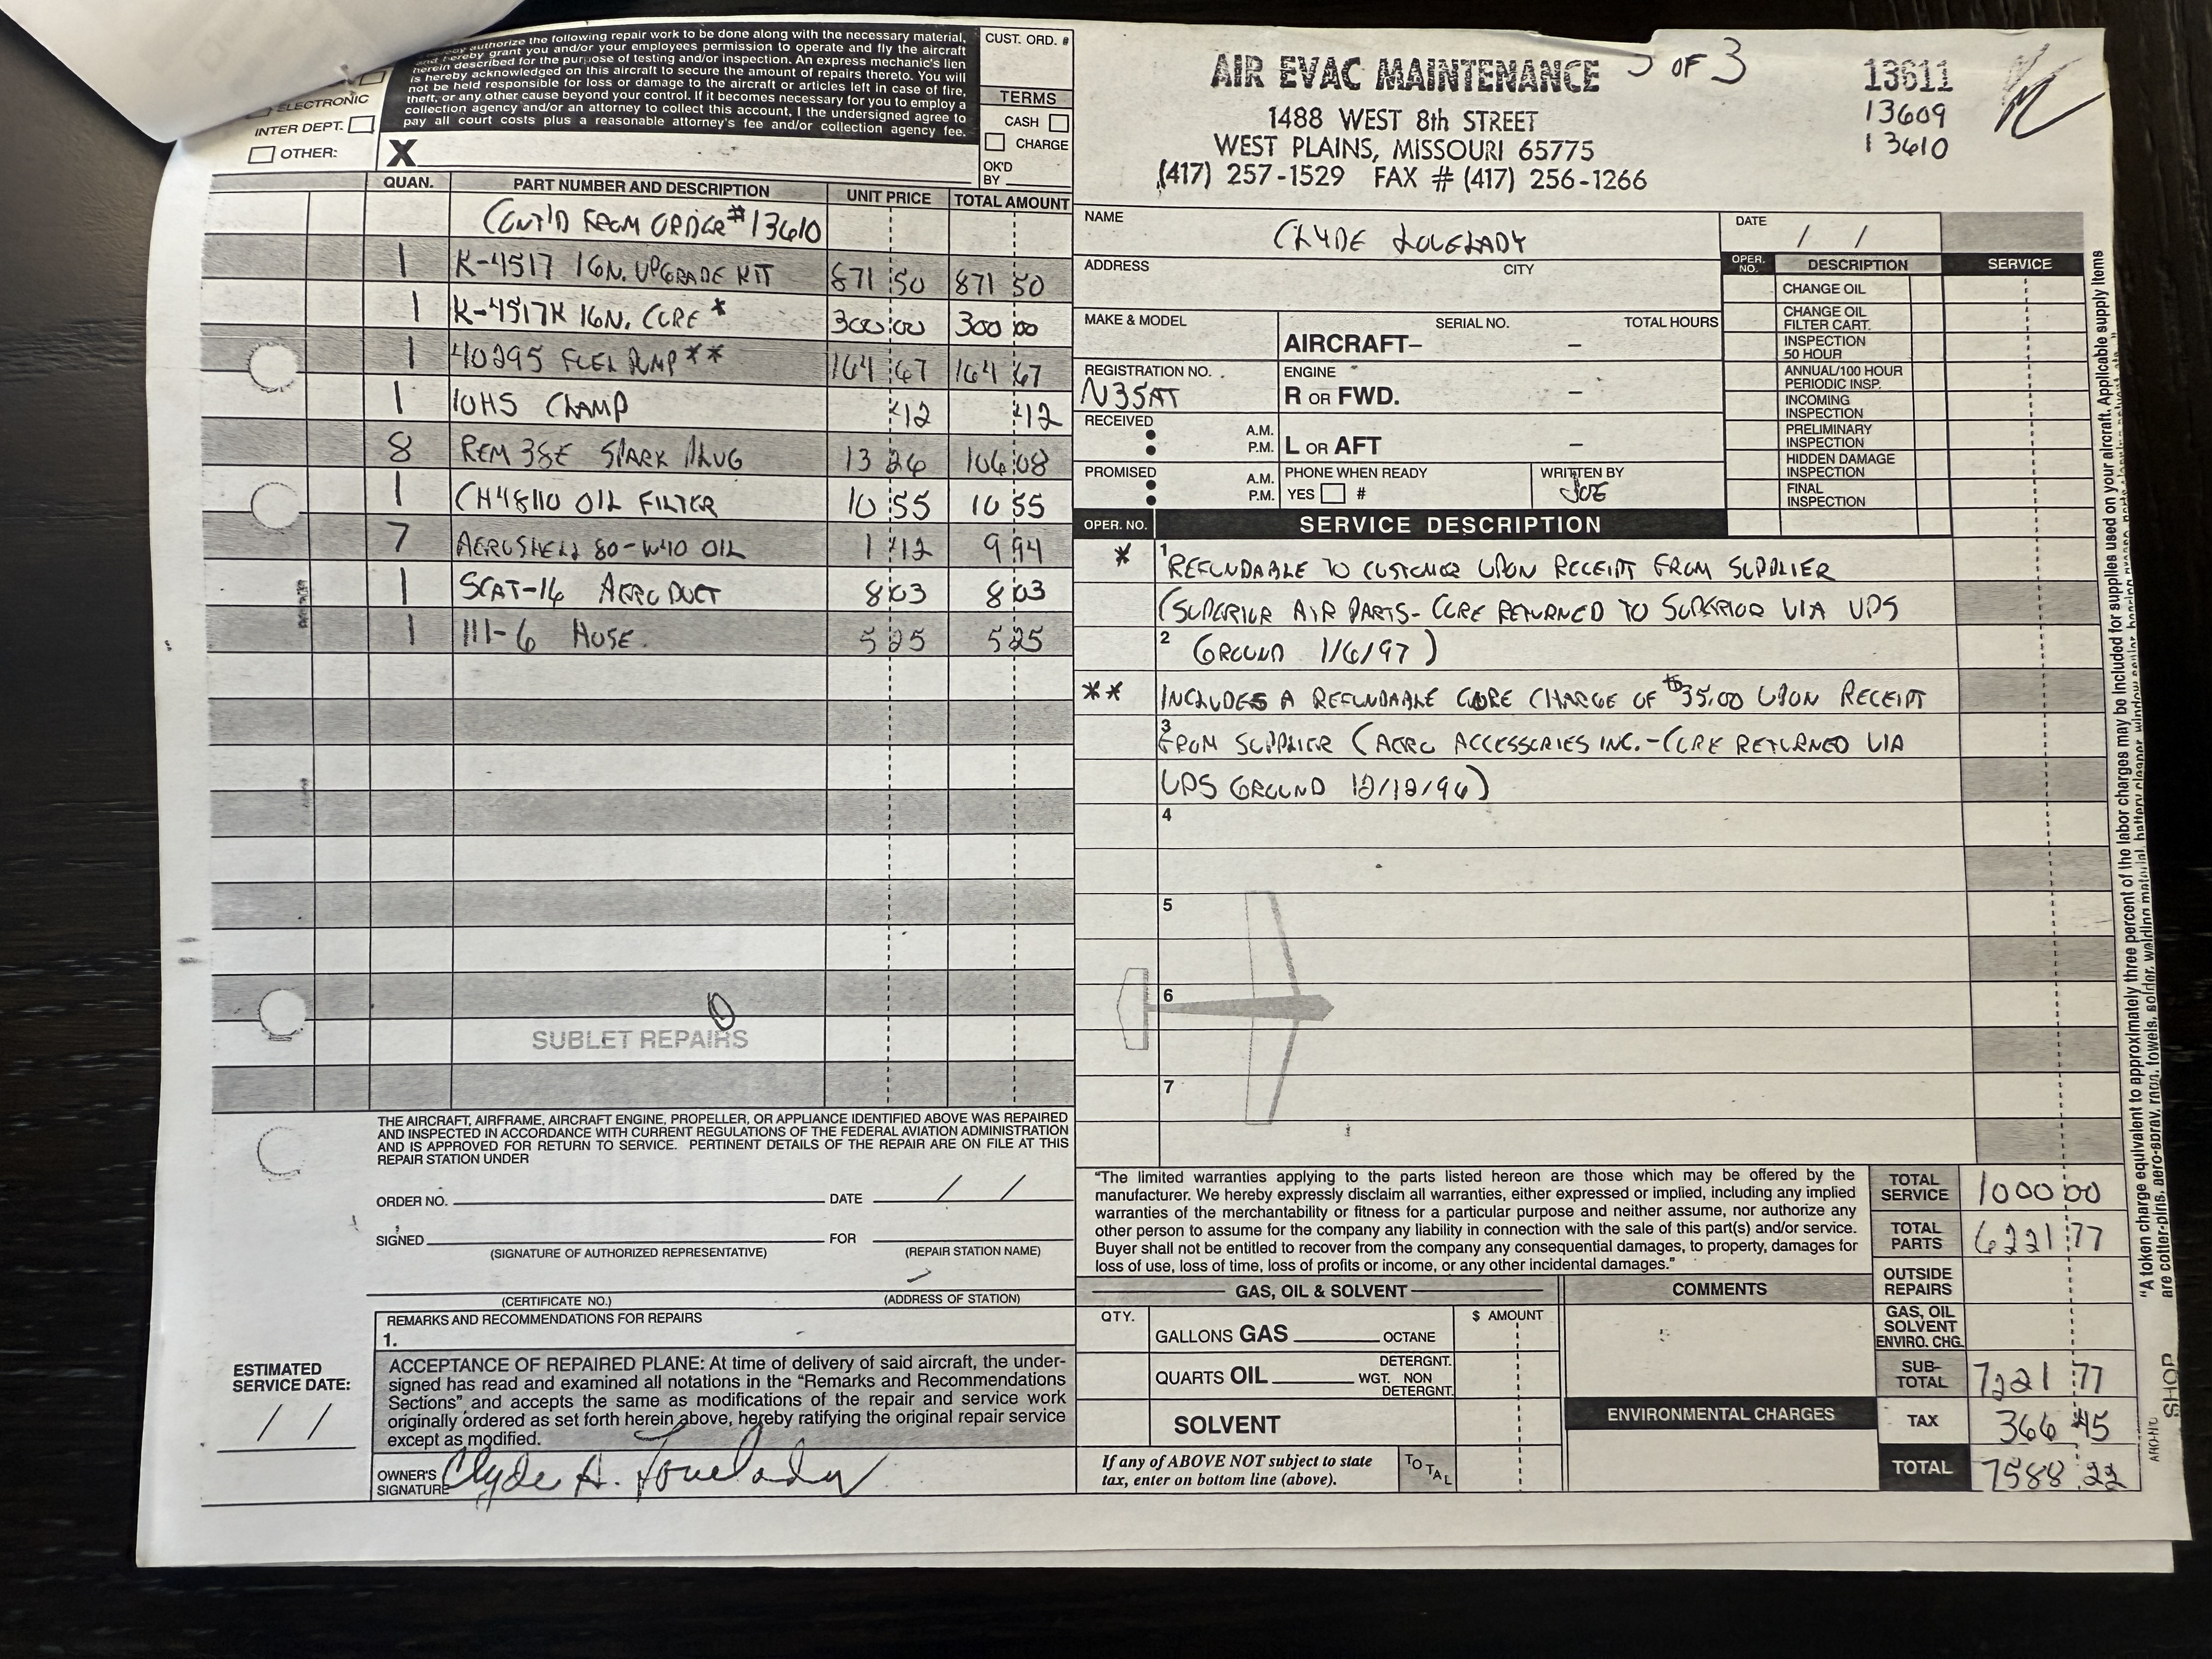 authorize the following repair work to be done along with the necessary material,
grant you and/or your employees permission to operate and fly the aircraft
herein described for the purpose of testing and/or inspection. An express mechanic's lien
is hereby acknowledged on this aircraft to secure the amount of repairs thereto. You will
not be held responsible for loss or damage to the aircraft or articles left in case of fire,
theft, or any other cause beyond your control. If it becomes necessary for you to employ a
collection agency and/or an attorney to collect this account, I the undersigned agree to
pay all court costs plus a reasonable attorney's fee and/or collection agency fee.
ELECTRONIC
INTER DEPT.
OTHER:
X
CUST. ORD. #
TERMS
CASH
CHARGE
OK'D
BY
AIR EVAC MAINTENANCE
1488 WEST 8th STREET
WEST PLAINS, MISSOURI 65775
(417) 257-1529 FAX # (417) 256-1266
3 OF 3
13611
13609
13610
QUAN. PART NUMBER AND DESCRIPTION UNIT PRICE TOTAL AMOUNT
CONT'D FROM ORDER #13610
1 K-4517 IGN. UPGRADE KIT 871 50 871 50
1 K-4517K IGN. CORE * 300 00 300 00
1 40295 FUEL PUMP ** 164 67 164 67
1 10HS CLAMP 42 42
8 REM 38E SPARK PLUG 13 26 106 08
1 CH48110 OIL FILTER 10 55 10 55
7 AEROSHELL 80-W40 OIL 1 42 9 94
1 SCAT-16 AERODUCT 8 03 8 03
1 111-6 HOSE 5 25 5 25
SUBLET REPAIRS
NAME CLYDE LOVELADY DATE / /
ADDRESS CITY
MAKE & MODEL SERIAL NO. TOTAL HOURS
AIRCRAFT– –
REGISTRATION NO. ENGINE
N35AT R OR FWD. –
RECEIVED A.M.
P.M. L OR AFT –
PROMISED A.M. PHONE WHEN READY WRITTEN BY
P.M. YES # JOE
OPER. NO. DESCRIPTION SERVICE
CHANGE OIL
CHANGE OIL
FILTER CART.
INSPECTION
50 HOUR
ANNUAL/100 HOUR
PERIODIC INSP.
INCOMING
INSPECTION
PRELIMINARY
INSPECTION
HIDDEN DAMAGE
INSPECTION
FINAL
INSPECTION
OPER. NO. SERVICE DESCRIPTION
* 1 REFUNDABLE TO CUSTOMER UPON RECEIPT FROM SUPPLIER
(SUPERIOR AIR PARTS- CORE RETURNED TO SUPERIOR VIA UPS
2 GROUND 1/6/97)
** INCLUDES A REFUNDABLE CORE CHARGE OF $35.00 UPON RECEIPT
3 FROM SUPPLIER (AERO ACCESSORIES INC.-CORE RETURNED VIA
UPS GROUND 12/12/96)
4
5
6
7
THE AIRCRAFT, AIRFRAME, AIRCRAFT ENGINE, PROPELLER, OR APPLIANCE IDENTIFIED ABOVE WAS REPAIRED
AND INSPECTED IN ACCORDANCE WITH CURRENT REGULATIONS OF THE FEDERAL AVIATION ADMINISTRATION
AND IS APPROVED FOR RETURN TO SERVICE. PERTINENT DETAILS OF THE REPAIR ARE ON FILE AT THIS
REPAIR STATION UNDER
ORDER NO. DATE / /
SIGNED FOR
(SIGNATURE OF AUTHORIZED REPRESENTATIVE) (REPAIR STATION NAME)
(CERTIFICATE NO.) (ADDRESS OF STATION)
REMARKS AND RECOMMENDATIONS FOR REPAIRS
1.
ESTIMATED
SERVICE DATE:
/ /
ACCEPTANCE OF REPAIRED PLANE: At time of delivery of said aircraft, the under-
signed has read and examined all notations in the "Remarks and Recommendations
Sections", and accepts the same as modifications of the repair and service work
originally ordered as set forth herein above, hereby ratifying the original repair service
except as modified.
OWNER'S
SIGNATURE Clyde A. Lovelady
"The limited warranties applying to the parts listed hereon are those which may be offered by the
manufacturer. We hereby expressly disclaim all warranties, either expressed or implied, including any implied
warranties of the merchantability or fitness for a particular purpose and neither assume, nor authorize any
other person to assume for the company any liability in connection with the sale of this part(s) and/or service.
Buyer shall not be entitled to recover from the company any consequential damages, to property, damages for
loss of use, loss of time, loss of profits or income, or any other incidental damages."
GAS, OIL & SOLVENT
QTY. $ AMOUNT
GALLONS GAS OCTANE
QUARTS OIL WGT. DETERGNT. NON DETERGNT.
SOLVENT
If any of ABOVE NOT subject to state
tax, enter on bottom line (above).
TOTAL
COMMENTS
ENVIRONMENTAL CHARGES
TOTAL SERVICE 1000 00
TOTAL PARTS 6221 77
OUTSIDE REPAIRS
GAS, OIL SOLVENT ENVIRO. CHG.
SUB-TOTAL 7221 77
TAX 366 45
TOTAL 7588 22
"A token charge equivalent to approximately three percent of the labor charges may be included for supplies used on your aircraft. Applicable supply items
are cotter-pins, aero-spray, rags, towels, solder, welding material, battery cleaner
SHOP